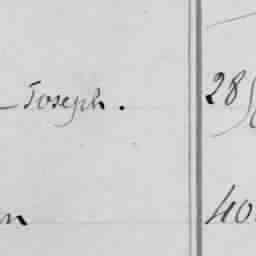 - Joseph. 28
40